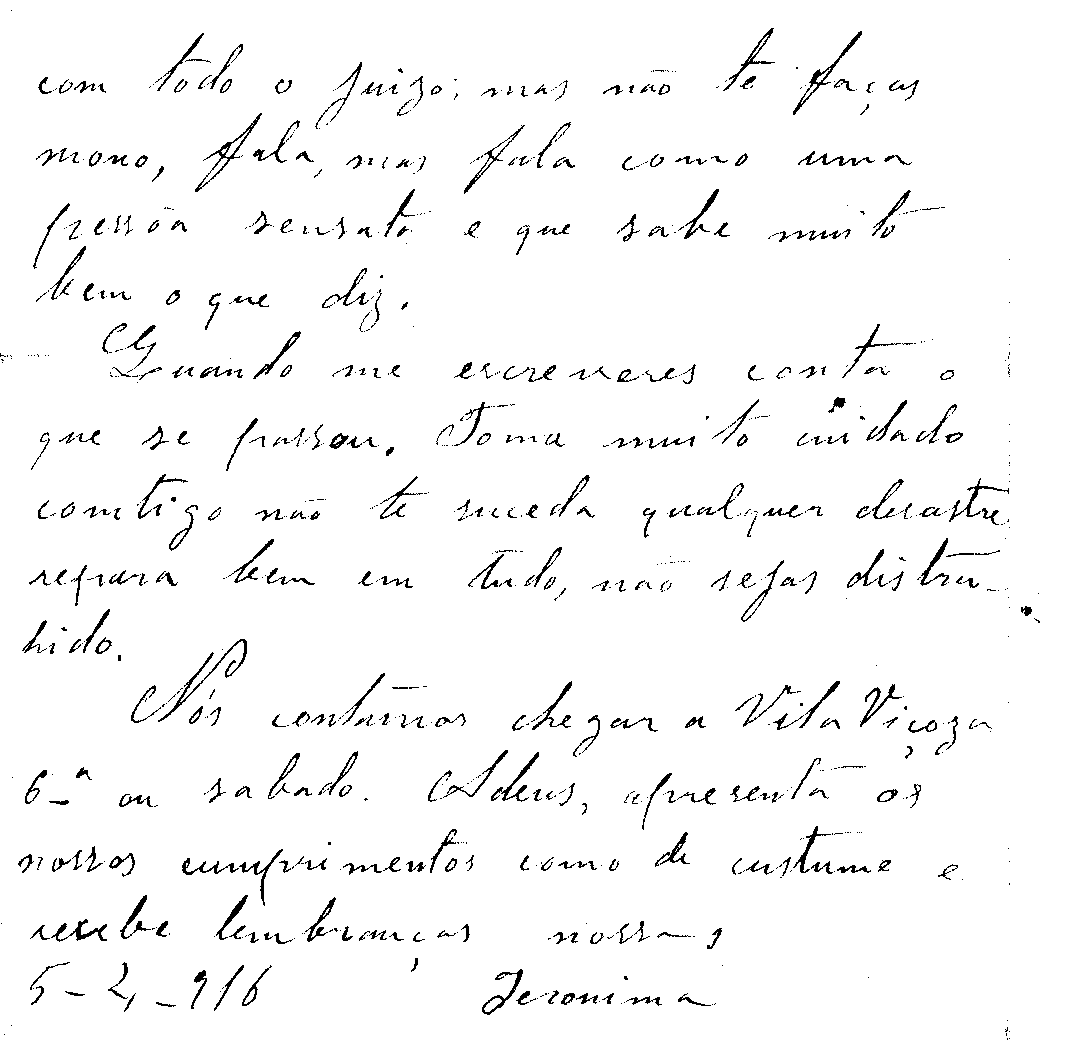 com todo o juizo; mas não te faças
mono, fala, mas fala como uma
pessôa sensata e que sabe muito
bem o que diz.
Quando me escreveres conta o
que se passou. Toma muito cuidado
comtigo não te suceda qualquer desastre
repara bem em tudo, não sejas distra-
hido.
Nós contâmos chegar a Vila Viçoza
6-ª ou sabado. Adeus, apresenta os
nossos cumprimentos como de custume e
recebe lembranças nossas
5-2-916 Jeronima